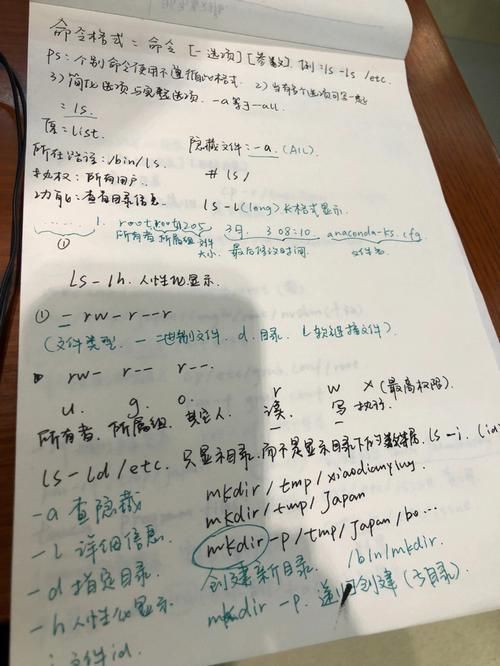 命令格式:命令 [-选项] [参数]. 例:ls -ls /etc.
ps:个别命令使用不遵循此格式. 2) 当有多个选项可写一起
3) 简化选项与完整选项. -a 等于 --all
= ls.
原:List. 隐藏文件:-a. (ALL)
所在路径:/bin/ls. # ls /
执权:所有用户.
功能:查看目录信息. ls -l (long) 长格式显示.
1. root root 1205 3月. 3 08:10. anaconda-ks.cfg
① 所有者 所属组 文件大小. 最后修改时间. 文件名
ls -lh. 人性化显示.
① - rw-r--r
(文件类型. - 二进制文件. d. 目录. l 软链接文件).
rw- r-- r--. r w x (最高权限).
u. g o. 读. 写 执行.
所有者. 所属组. 其它人.
ls -ld /etc. 只显示目录.而不是显示目录下的数据. ls -i. (id
-a 查隐藏 mkdir /tmp/xiaodianying
-l 详细信息 mkdir /tmp/Japan
-d 指定目录. mkdir -p /tmp/Japan/bo...
-h 人性化显示 创建新目录. /bin/mkdir.
i 文件id. mkdir -p. 递归创建 (含目录).